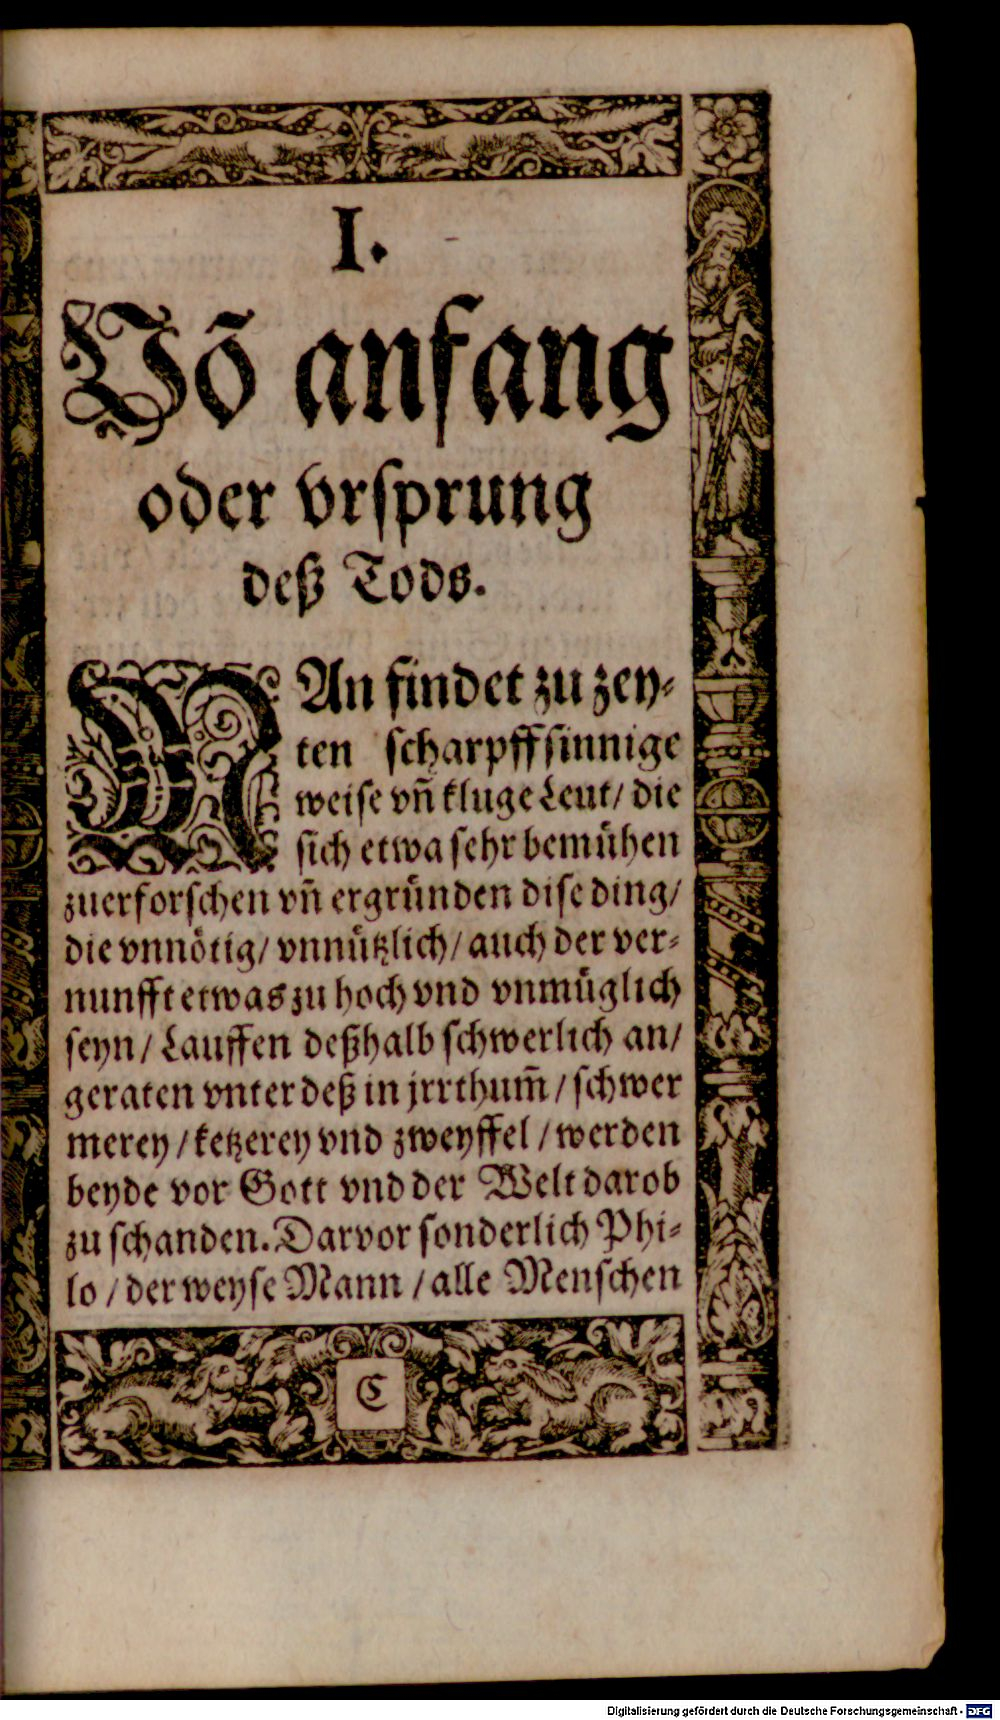 I.
Võ anfang
oder vrſprung
deß Tods.
MAn findet zu zey⸗
ten ſcharpffſinnige
weiſe vñ kluge Leut/ die
ſich etwa ſehr bemühen
zuerforſchen vñ ergründen diſe ding/
die vnnötig/ vnnützlich/ auch der ver⸗
nunfft etwas zu hoch vnd vnmüglich
ſeyn/ Lauffen deßhalb ſchwerlich an/
geraten vnter deß in jrrthum̃/ ſchwer
merey/ ketzerey vnd zweyffel/ werden
beyde vor Gott vnd der Welt darob
zu ſchanden. Darvor ſonderlich Phi⸗
lo/ der weyſe Mann/ alle Menſchen
C
Digitalisierung gefördert durch die Deutsche Forschungsgemeinschaft - DFG